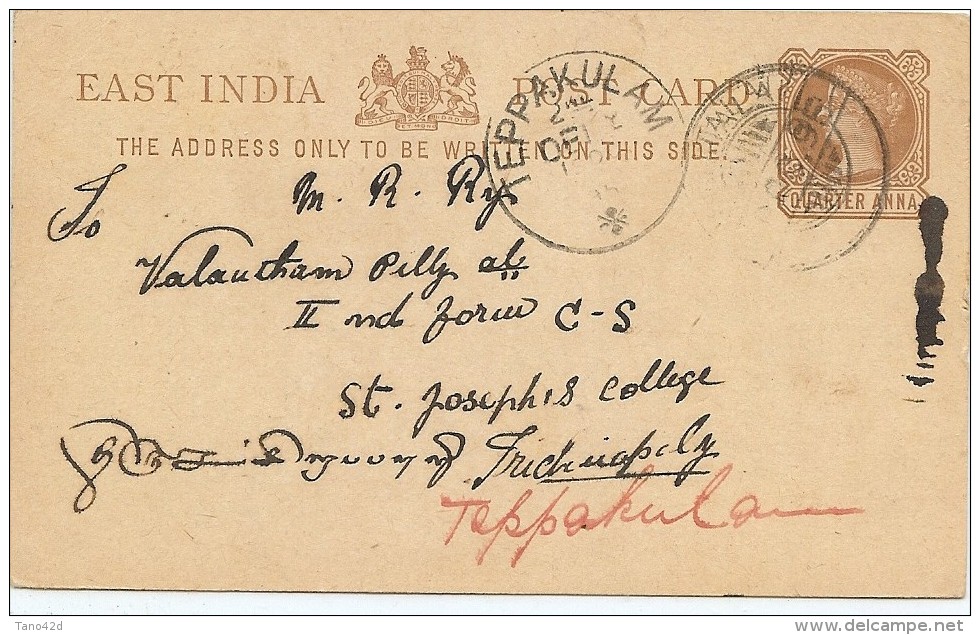 EAST INDIA POST CARD
THE ADDRESS ONLY TO BE WRITTEN ON THIS SIDE.
QUARTER ANNA
TEPPAKULAM
To
M. R. Ry
Valautham Pilly
II nd form C-S
St. Joseph's College
Trichinopoly
Teppakulam
Tano42d
delcampe.net